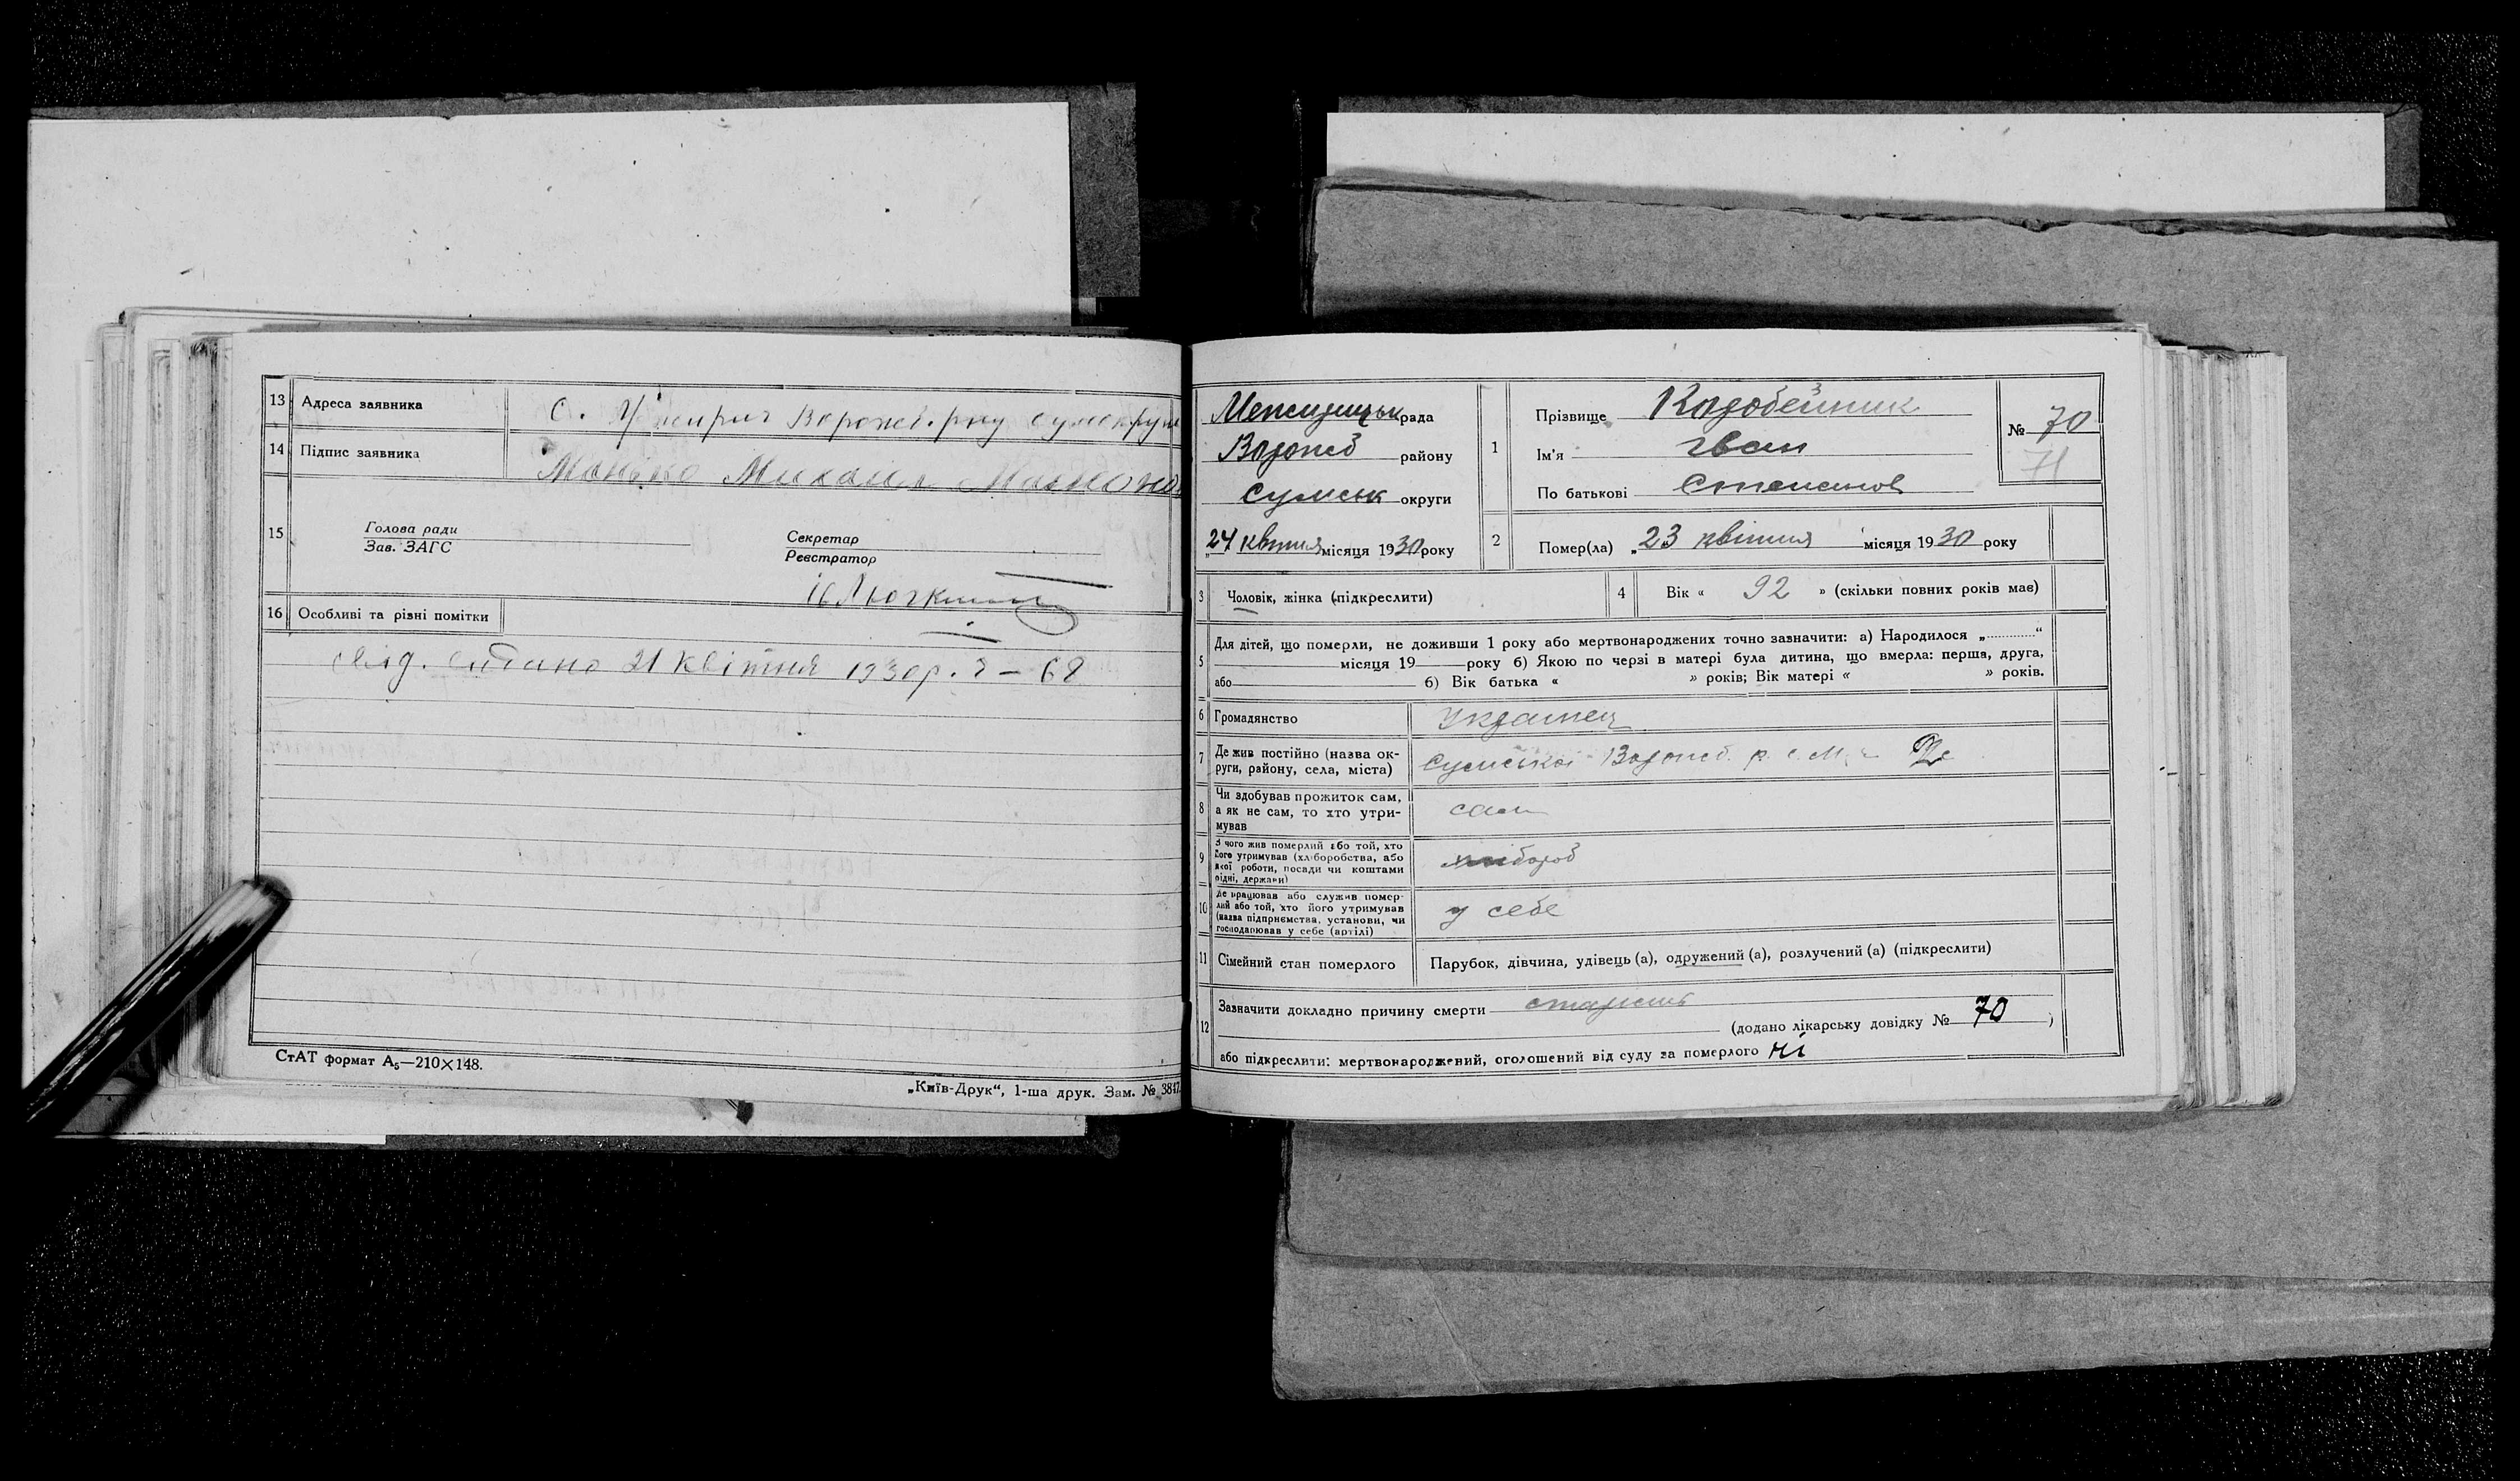 13 Адреса заявника С.
14 Підпис заявника
15 Голова ради
Зав. ЗАГС
Секретар
Реєстратор
16 Особливі та різні помітки
видано 21 квітня 1930р. 68
СтАТ формат А₅—210×148.
„Київ-Друк“, 1-ша друк. Зам. № 3847
рада
району
Сумськ округи
„24 квітня місяця 1930 року
1 Прізвище Коробейник
Ім'я Іван
По батькові Степанов
№ 70
71
2 Помер(ла) „23 квітня місяця 1930 року
3 Чоловік, жінка (підкреслити)
4 Вік « 92 » (скільки повних років має)
5 Для дітей, що померли, не доживши 1 року або мертвонароджених точно зазначити: а) Народилося „ “
місяця 19 року б) Якою по черзі в матері була дитина, що вмерла: перша, друга,
або б) Вік батька « » років; Вік матері « » років.
6 Громадянство Украинец
7 Де жив постійно (назва ок-
руги, району, села, міста) Сумської
8 Чи здобував прожиток сам,
а як не сам, то хто утри-
мував сам
9 З чого жив померлий або той, хто
його утримував (хліборобства, або
якої роботи, посади чи коштами
рідні, держави) хлібороб
10 Де працював або служив помер-
лий або той, хто його утримував
(назва підприємства, установи, чи
господарював у себе (артілі) у себе
11 Сімейний стан померлого Парубок, дівчина, удівець (а), одружений (а), розлучений (а) (підкреслити)
12 Зазначити докладно причину смерти
(додано лікарську довідку № 70 )
або підкреслити: мертвонароджений, оголошений від суду за померлого ні